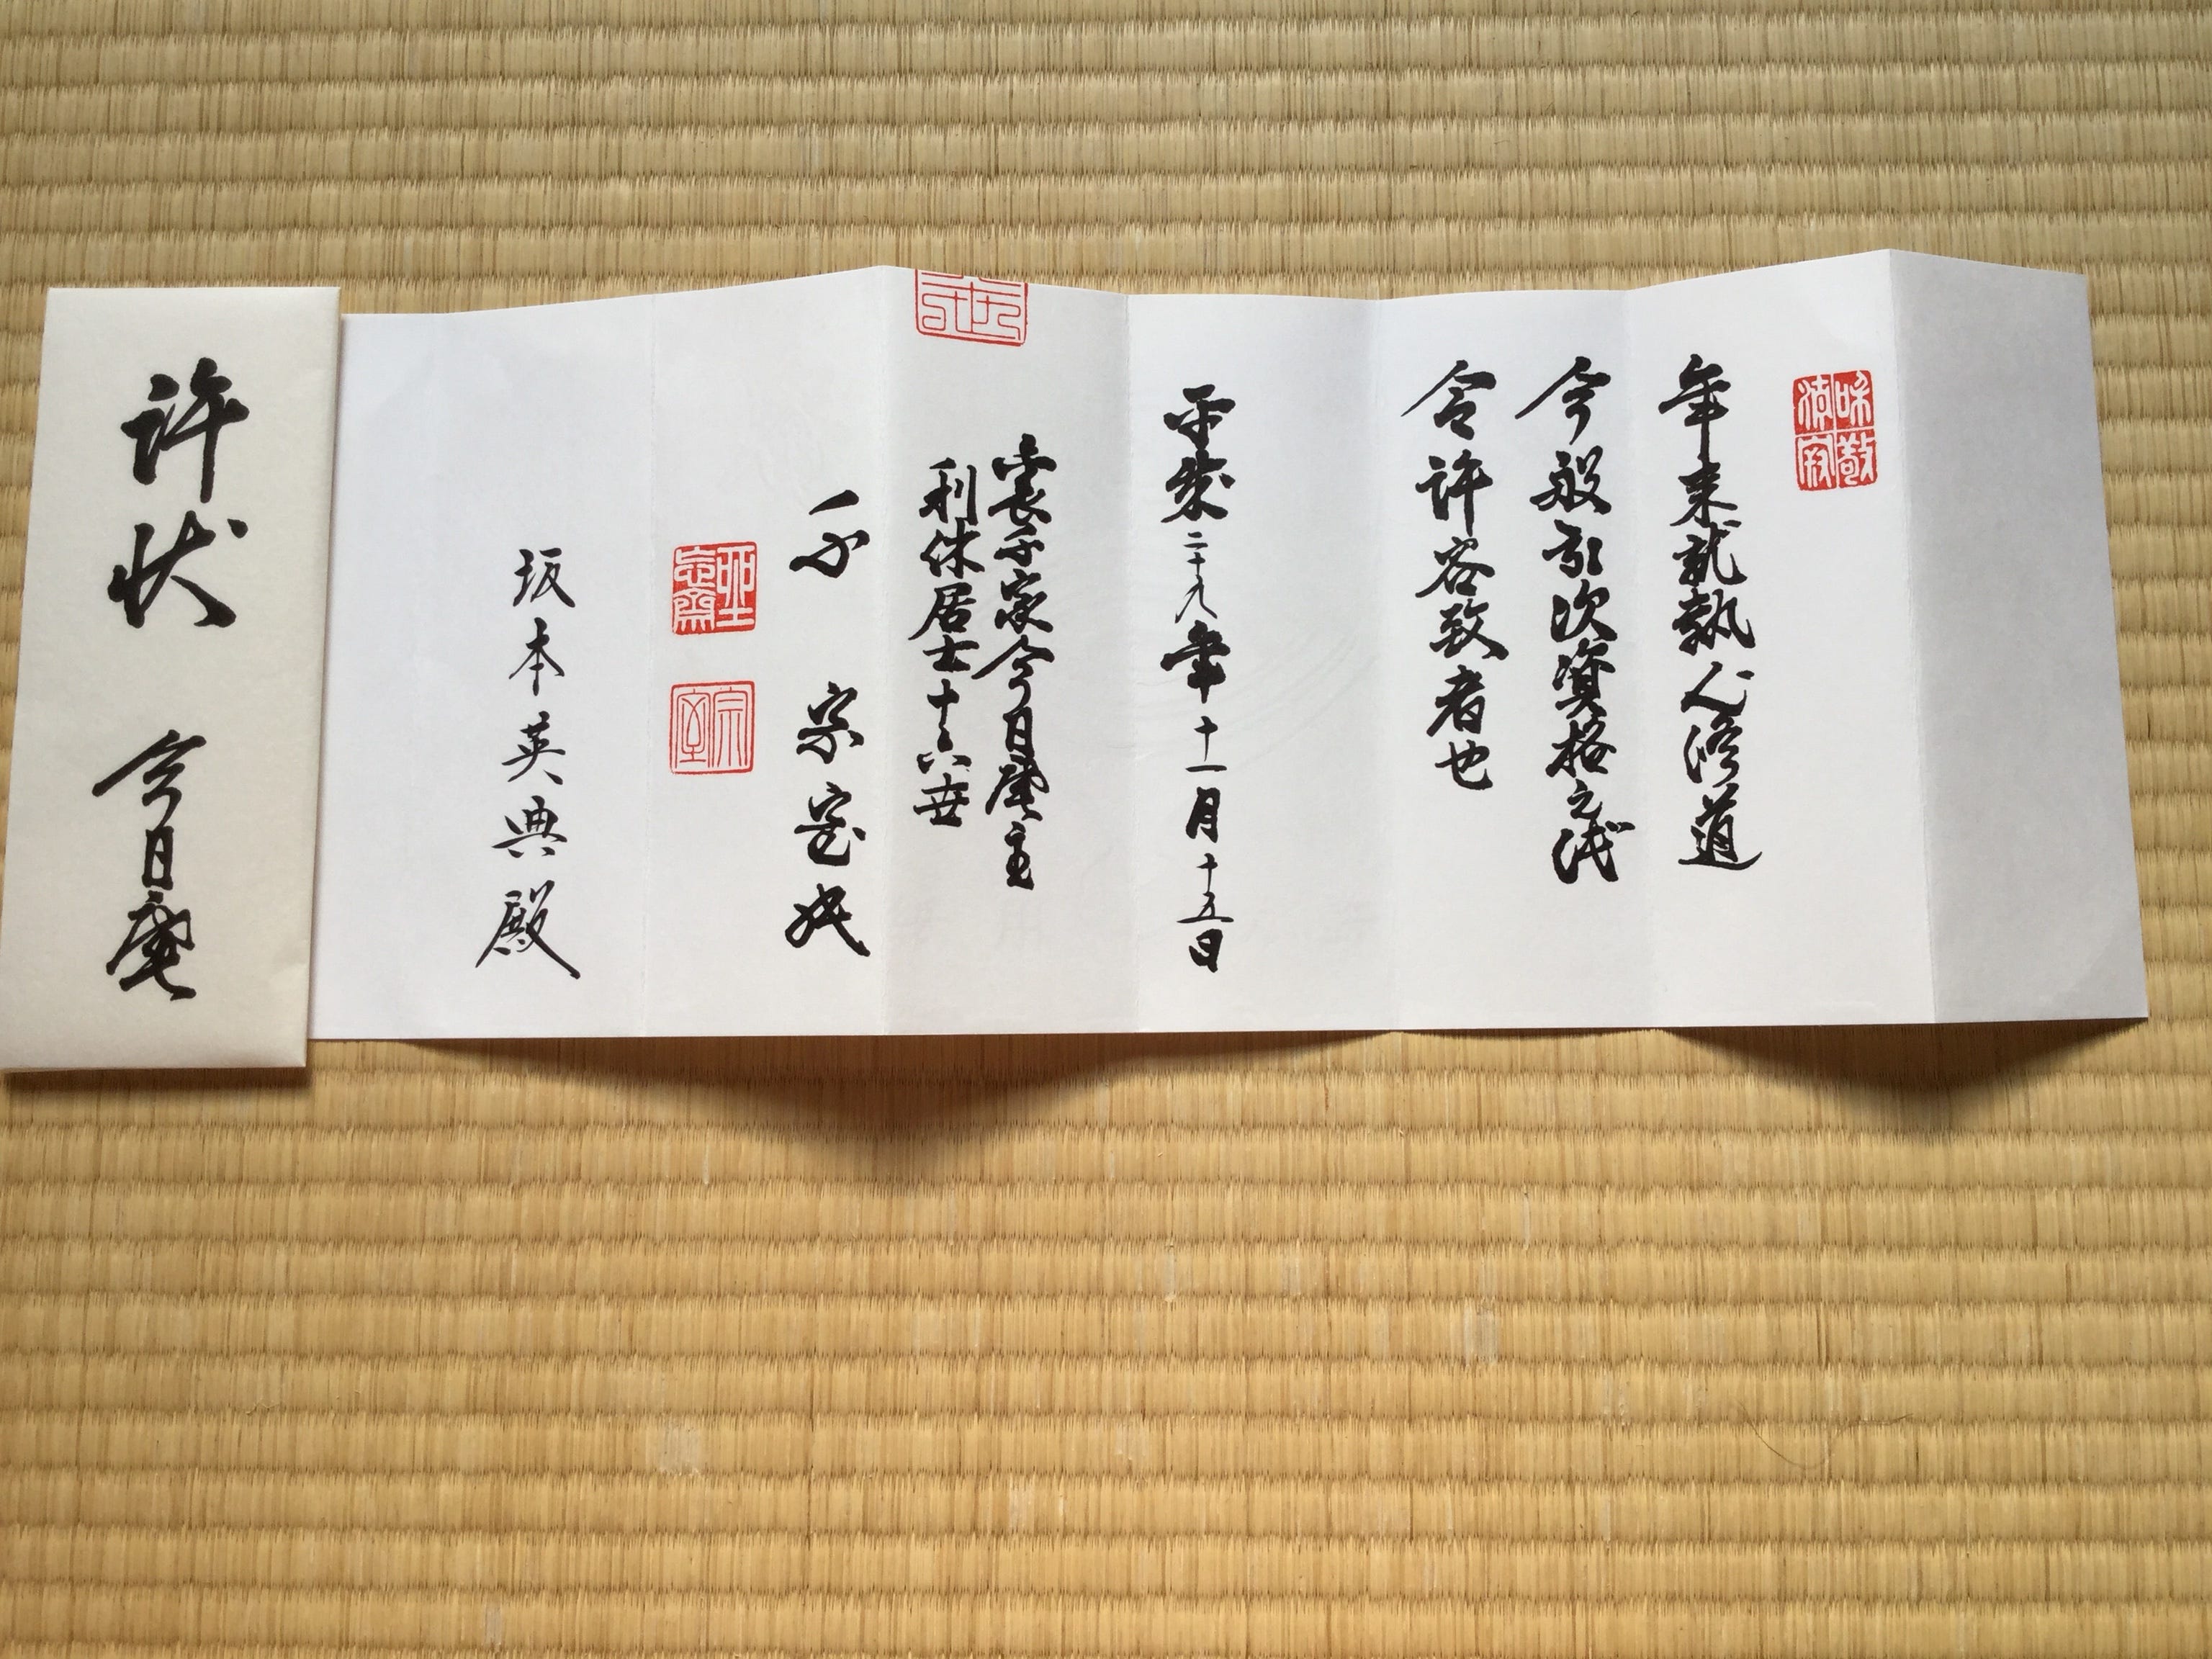 和敬
清寂
年来就執心修道
今般引次資格之儀
令許容致者也
平成二十九年十一月十五日
裏千家今日庵主
利休居士十六世
千 宗室
坐忘斎
宗室
坂本英典殿
許状 今日庵